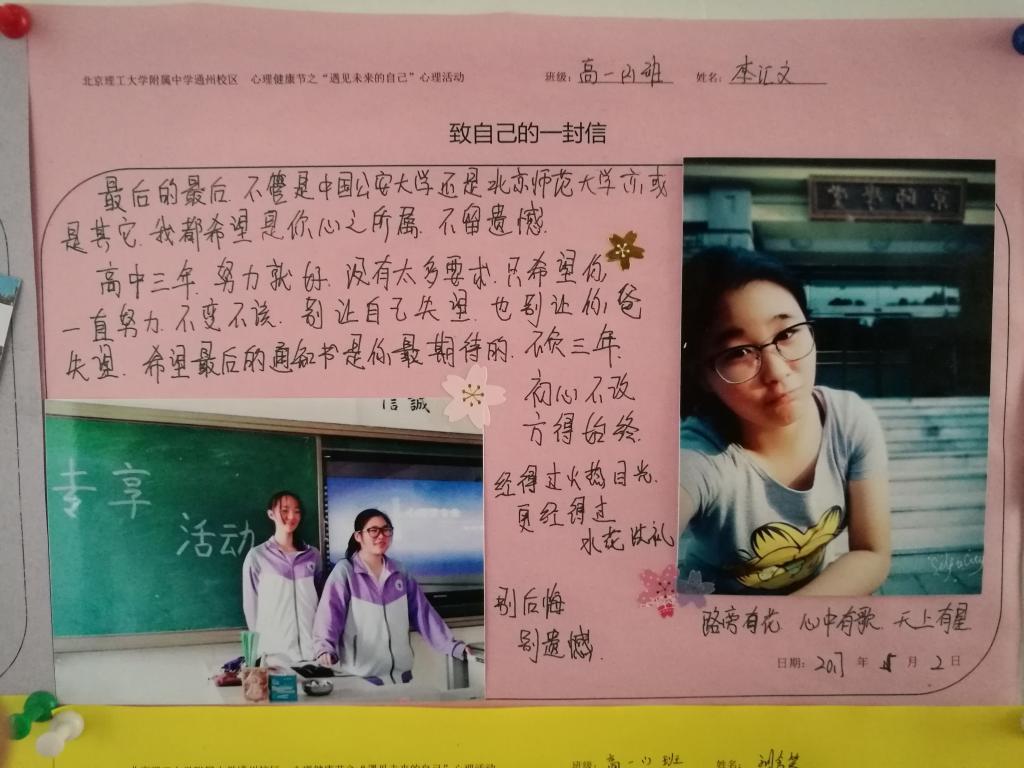 北京理工大学附属中学通州校区 心理健康节之“遇见未来的自己”心理活动 班级：高一(2)班 姓名：李汇文
致自己的一封信
最后的最后.不管是中国公安大学还是北京师范大学亦或
是其它.我都希望是你心之所属.不留遗憾.
高中三年.努力就好.没有太多要求.只希望你
一直努力.不变不该.别让自己失望.也别让你爸
失望.希望最后的通知书是你最期待的.不负三年.
初心不改
方得始终.
经得过火热目光.
更经得过
水花洗礼
别后悔
别遗憾.
京师学堂
信誠
专享
活动
Self a City
路旁有花 心中有歌 天上有星
日期：2017年5月2日
班级：高一(2)班 姓名：